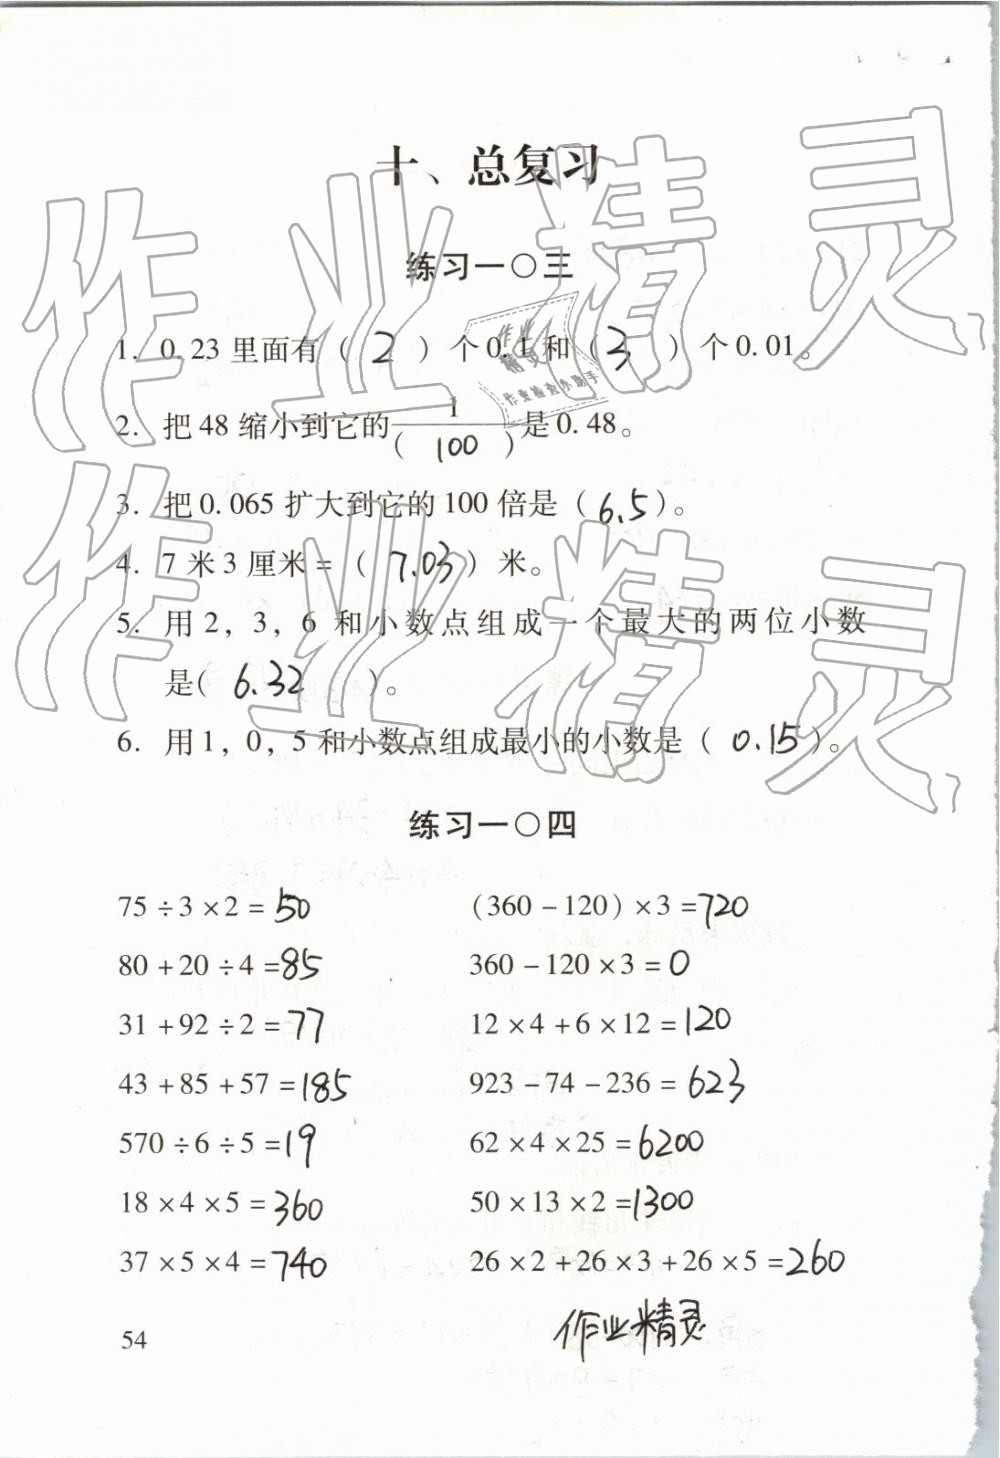 十、总复习
练习一〇三
1. 0.23里面有( 2 )个0.1和( 3 )个0.01。
2. 把48缩小到它的1/( 100 )是0.48。
3. 把0.065扩大到它的100倍是( 6.5 )。
4. 7米3厘米=( 7.03 )米。
5. 用2,3,6和小数点组成一个最大的两位小数
是( 6.32 )。
6. 用1,0,5和小数点组成最小的小数是( 0.15 )。
练习一〇四
75÷3×2=50 (360-120)×3=720
80+20÷4=85 360-120×3=0
31+92÷2=77 12×4+6×12=120
43+85+57=185 923-74-236=623
570÷6÷5=19 62×4×25=6200
18×4×5=360 50×13×2=1300
37×5×4=740 26×2+26×3+26×5=260
作业精灵
54
作业精灵
作业精灵
作业
精灵
作业检查小助手